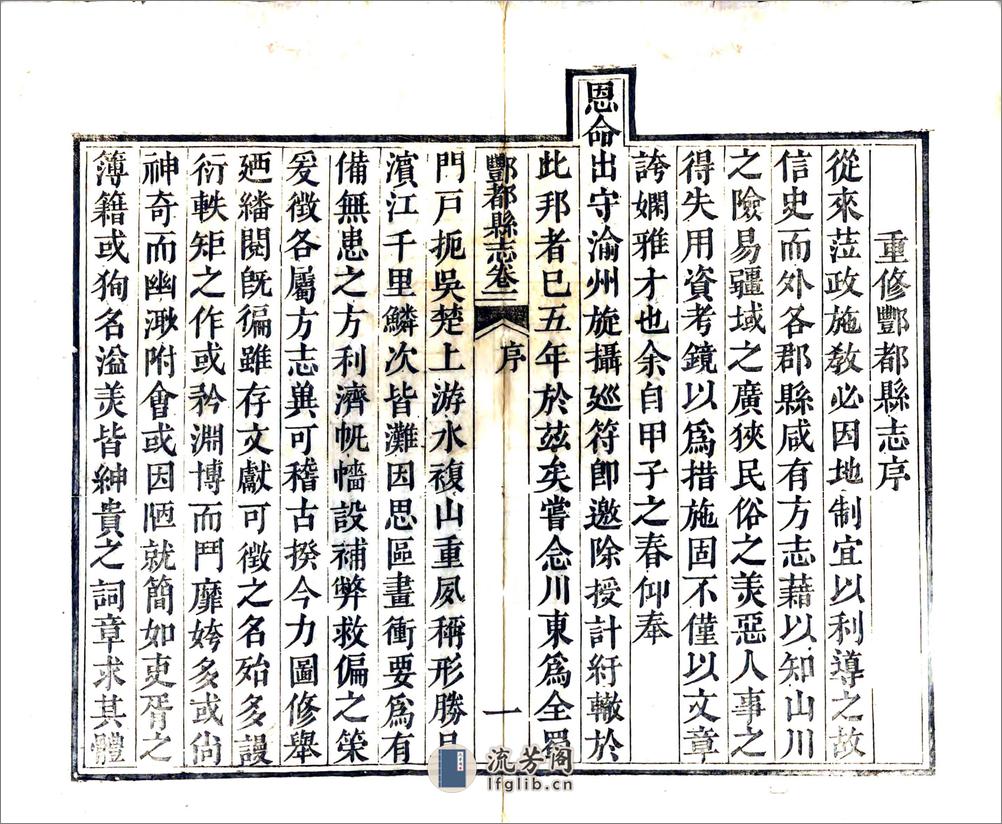 重修酆都縣志序
從來蒞政施敎必因地制宜以利導之故
信史而外各郡縣咸有方志藉以知山川
之險易疆域之廣狹民俗之美惡人事之
得失用資考鏡以爲措施固不僅以文章
誇嫻雅才也余自甲子之春仰奉
恩命出守渝州旋攝廵符卽邀除授計紆轍於
此邦者已五年於玆矣嘗念川東爲全蜀
酆都縣志卷一 序 一
門戸扼吳楚上游水複山重夙稱形勝且
濵江千里鱗次皆灘因思區畫衝要爲有
備無患之方利濟帆檣設補弊救偏之策
爰徵各屬方志兾可稽古揆今力圖修舉
廼繙閱旣徧雖存文獻可徵之名殆多謾
衍軼矩之作或矜淵博而鬥靡姱多或尙
神奇而幽渺附會或因陋就簡如吏胥之
簿籍或狥名溢美皆紳貴之詞章求其體
流芳阁
lfglib.cn